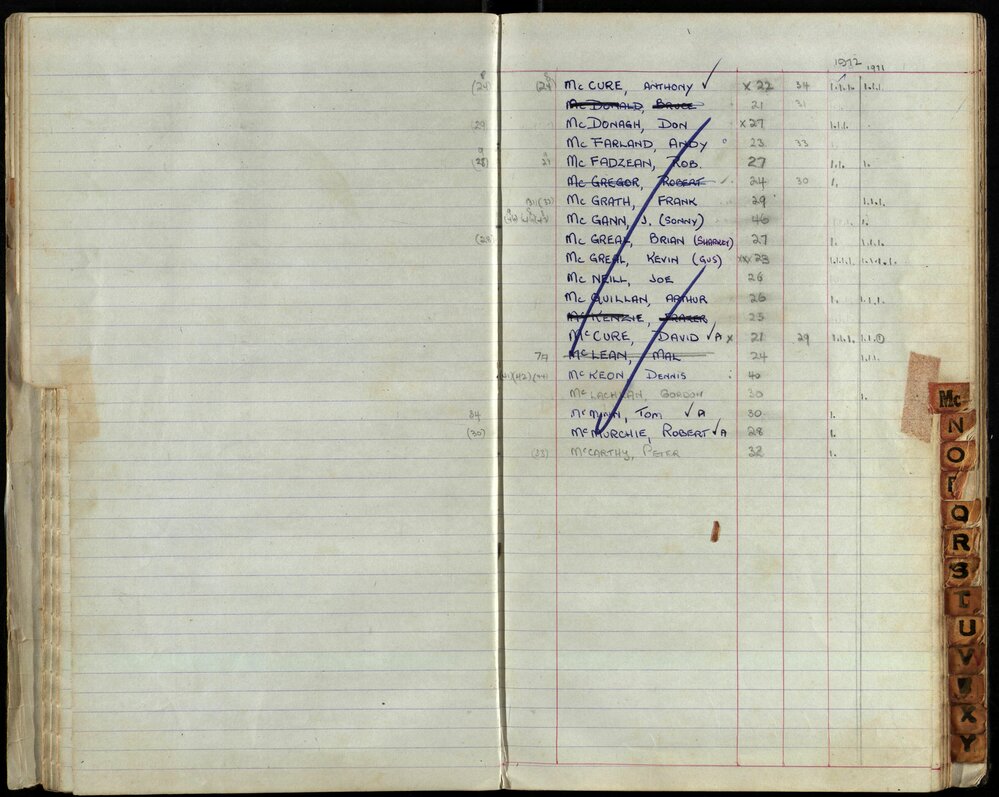 1972 1971
(24) (24) McCURE, ANTHONY ✓ x 22 34 1.1.1. 1.1.1.
McDONALD, BRUCE 21 31
29 McDONAGH, DON x27 1.1.1.
McFARLAND, ANDY 23 33
9 (28) McFADZEAN, ROB. 27 1.1. 1.
McGREGOR, ROBERT 24 30 1.
McGRATH, FRANK 29 1.1.1.
McGANN, J. (SONNY) 46 1.
McGREAL, BRIAN (SHARKEY) 27 1. 1.1.1.
McGREAL, KEVIN (GUS) xx 23 1.1.1.1. 1.1.1.1.
McNEILL, JOE 26
McQUILLAN, ARTHUR 26 1. 1.1.1.
McKENZIE, FRASER 23
McCURE, DAVID ✓A x 21 29 1.1.1. 1.1.
McLEAN, MAL 24 1.1.1.
McKEON, DENNIS 40
McLACHLAN, GORDON 30 1.
34 McMYNN, TOM ✓A 30 1.
(30) McMURCHIE, ROBERT ✓A 28 1.
(33) McCARTHY, PETER 32 1.
Mc
N
O
P
Q
R
S
T
U
V
W
X
Y